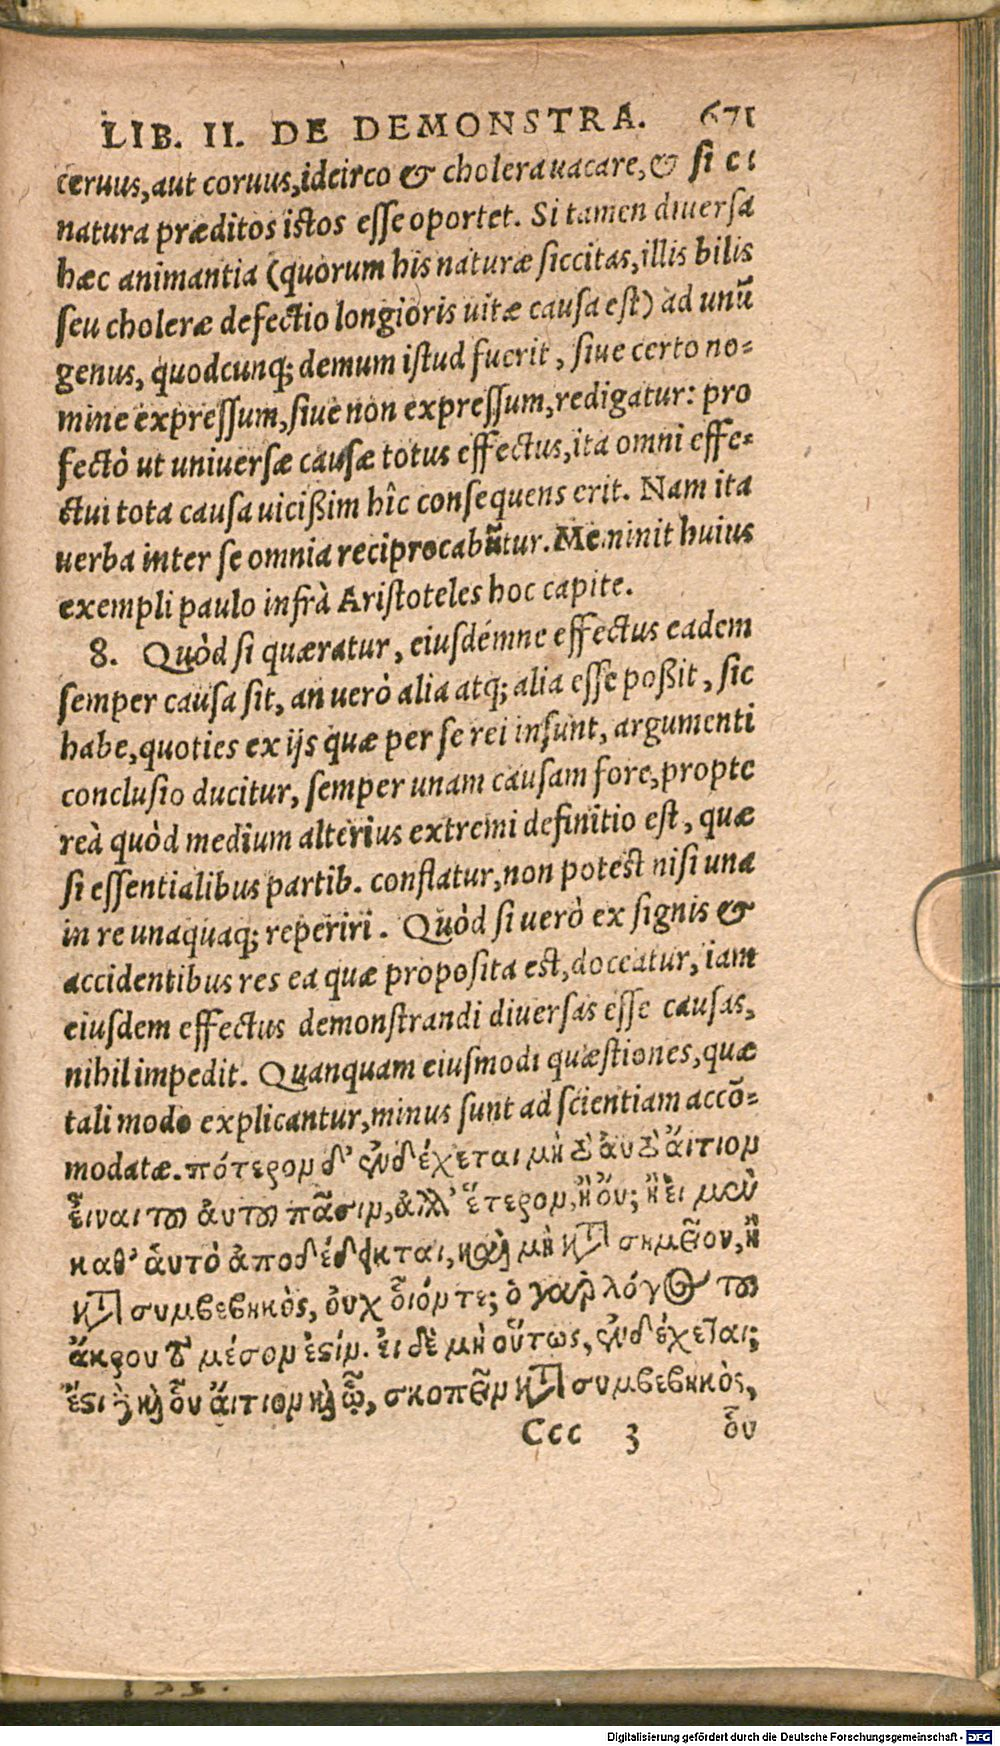 LIB. II. DE DEMONSTRA. 671
ceruus, aut coruus, idcirco & cholera uacare, & si c i
natura præditos istos esse oportet. Si tamen diuersa
hæc animantia (quorum his naturæ siccitas, illis bilis
seu choleræ defectio longioris uitæ causa est) ad unũ
genus, quodcunq; demum istud fuerit, siue certo no-
mine expressum, siue non expressum, redigatur: pro
fectò ut uniuersæ causæ totus effectus, ita omni effe-
ctui tota causa uicißim hîc consequens erit. Nam ita
uerba inter se omnia reciprocabũtur. Meminit huius
exempli paulo infrà Aristoteles hoc capite.
8. Quòd si quæratur, eiusdémne effectus eadem
semper causa sit, an uerò alia atq; alia esse poßit, sic
habe, quoties ex ijs quæ per se rei insunt, argumenti
conclusio ducitur, semper unam causam fore, propte
reà quòd medium alterius extremi definitio est, quæ
si essentialibus partib. conflatur, non potest nisi una
in re unaquaq; reperiri. Quòd si uerò ex signis &
accidentibus res ea quæ proposita est, doceatur, iam
eiusdem effectus demonstrandi diuersas esse causas,
nihil impedit. Quanquam eiusmodi quæstiones, quæ
tali modo explicantur, minus sunt ad scientiam accō-
modatæ. πότερον δ' ἐνδέχεται μὴ τὸ αὐτὸ ἄιτιον
εἶναι τοῦ ἀυτοῦ πᾶσιν, ἀλλ' ἕτερον, ἢ ὄυ; ἢ εἰ μὲν
καθ' ἁυτὸ ἀποδέδεικται, καὶ μὴ κατὰ σημεῖον, ἢ
κατὰ συμβεβηκὸς, ὀυχ οἷόν τε; ὁ γὰρ λόγος τοῦ
ἄκρου τὸ μέσον ἐστίν. ἐι δὲ μὴ οὕτως, ἐνδέχεται;
ἔστι δὲ καὶ οὗ ἄιτιον καὶ ᾧ, σκοπεῖν κατὰ συμβεβηκὸς,
Ccc 3 ὀυ
Digitalisierung gefördert durch die Deutsche Forschungsgemeinschaft - DFG